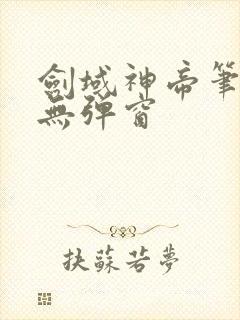 劍域神帝筆
無彈窗
扶蘇若夢